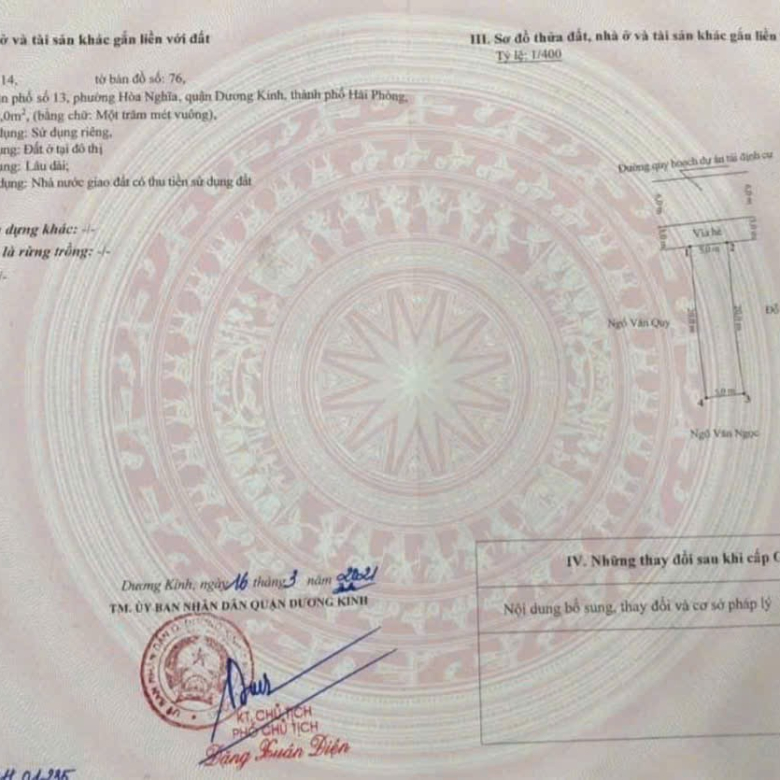 ở và tài sản khác gắn liền với đất
14, tờ bản đồ số: 76,
n phố số 13, phường Hòa Nghĩa, quận Dương Kinh, thành phố Hải Phòng,
,0m², (bằng chữ: Một trăm mét vuông),
dụng: Sử dụng riêng,
ụng: Đất ở tại đô thị
ụng: Lâu dài;
dụng: Nhà nước giao đất có thu tiền sử dụng đất
dựng khác: -/-
là rừng trồng: -/-
/-
III. Sơ đồ thửa đất, nhà ở và tài sản khác gắn liền
Tỷ lệ: 1/400
Đường quy hoạch dự án tái định cư
6,0 m
6,0 m
3,0 m
Vỉa hè
3,0 m
1
5,0 m
2
Ngô Văn Quy
20,0 m
20,0 m
Đỗ
4
5,0 m
3
Ngô Văn Ngọc
Dương Kinh, ngày 16 tháng 3 năm 2021
TM. ỦY BAN NHÂN DÂN QUẬN DƯƠNG KINH
KT. CHỦ TỊCH
PHÓ CHỦ TỊCH
Đặng Xuân Diện
IV. Những thay đổi sau khi cấp G
Nội dung bổ sung, thay đổi và cơ sở pháp lý
H 01235